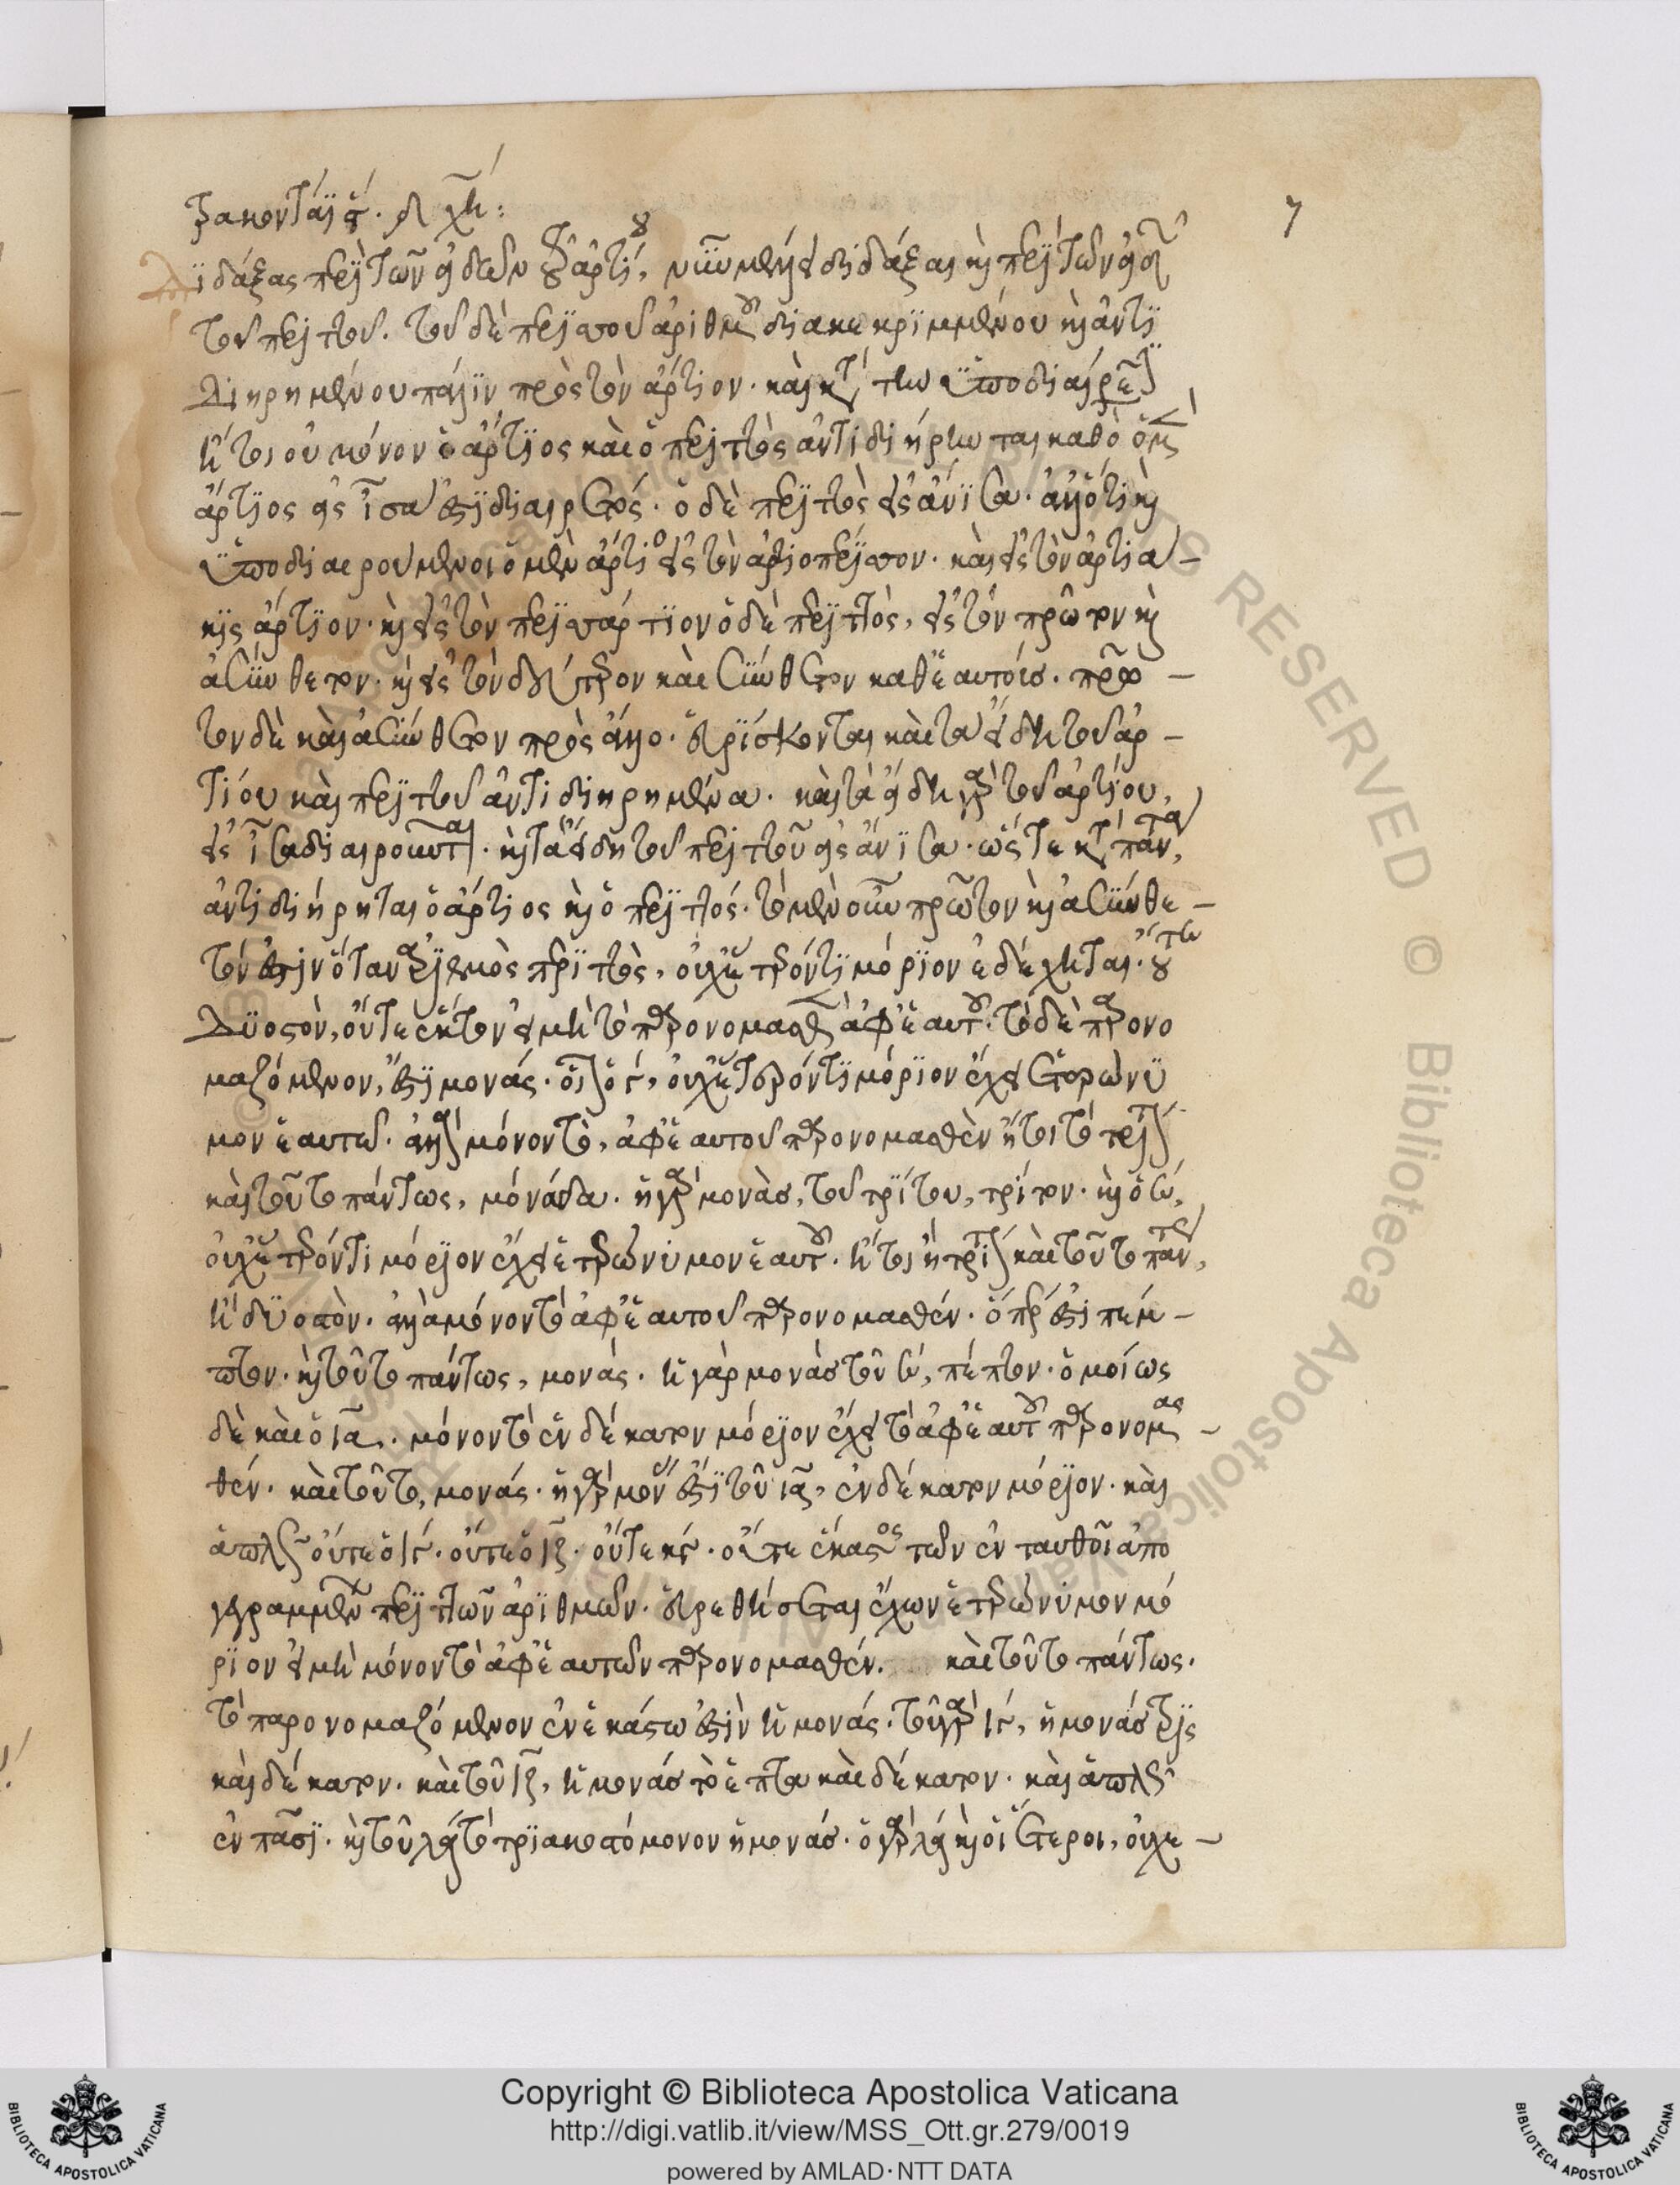 7
διδάξας περὶ τῶν εἰδῶν τοῦ ἀρτίου, νῦν μέλλει διδάξαι καὶ περὶ τῶν εἰδῶν
τοῦ περιττοῦ. τοῦ δὲ περιττοῦ ἀριθμοῦ διακεκριμμένου καὶ ἀντι
διῃρημένου πάλιν πρὸς τὸν ἄρτιον. καὶ κατὰ τὴν ὑποδιαίρεσιν
ἤτοι οὐ μόνον ὁ ἄρτιος καὶ ὁ περιττὸς ἀντιδιῄρηνται καθὸ ὁ μὲν
ἄρτιος εἰς ἴσα ἐστὶ διαιρετός. ὁ δὲ περιττὸς εἰς ἄνισα. ἀλλ' ὅτι καὶ
ὑποδιαιρούμενοι ὁ μὲν ἄρτιος εἰς τὸν ἀρτιοπέριττον. καὶ εἰς τὸν ἀρτιά-
κις ἄρτιον. καὶ εἰς τὸν περιττάρτιον ὁ δὲ περιττός, εἰς τὸν πρῶτον καὶ
ἀσύνθετον. καὶ εἰς τὸν δεύτερον καὶ σύνθετον καθ' ἑαυτούς. πρῶ-
τον δὲ καὶ ἀσύνθετον πρὸς ἄλλο. εὑρίσκονται καὶ τὰ εἴδη τοῦ ἀρ-
τίου καὶ περιττοῦ ἀντιδιῃρημένα. καὶ τὰ εἴδη γὰρ τοῦ ἀρτίου,
εἰς ἴσα διαιροῦνται. καὶ τὰ εἴδη τοῦ περιττοῦ εἰς ἄνισα. ὥστε κατὰ πάντα,
ἀντιδιῄρηται ὁ ἄρτιος καὶ ὁ περιττός. τὸ μὲν οὖν πρῶτον καὶ ἀσύνθε-
τόν ἐστιν ὅταν ἀριθμὸς περιττὸς, οὐχ ἕτερόν τι μόριον ἐδέχηται. οὔτω
δυοστὸν, οὔτε ἕκτον εἰ μὴ τὸ παρονομασθὲν ἀφ' ἑαυτοῦ. τὸ δὲ παρονο
μαζόμενον, ἐστὶ μονάς. οἷον ὁ γ, οὐχ ἕτερόν τι μόριον ἔχει ἑτερώνυ
μον ἑαυτοῦ. ἀλλὰ μόνον τὸ, ἀφ' ἑαυτοῦ παρονομασθὲν ἤτοι τὸ τρίτον
καὶ τοῦτο πάντως, μονάδα. ἡ γὰρ μονὰς, τοῦ τρίτου, τρίτον. καὶ ὁ ε,
οὐχ ἕτερόν τι μόριον ἔχει ἑτερώνυμον ἑαυτοῦ. ἤτοι ἢ τρίτον καὶ τοῦτο πάντως,
ἢ δυοστὸν. ἀλλὰ μόνον τὸ ἀφ' ἑαυτοῦ παρονομασθέν. ὅπερ ἐστὶ πέμ-
πτον. καὶ τοῦτο πάντως, μονάς. ἡ γὰρ μονὰς τοῦ ε, πέπτον. ὁμοίως
δὲ καὶ ὁ ια. μόνον τὸ ἑνδέκατον μόριον ἔχει τὸ ἀφ' ἑαυτοῦ παρονομασ-
θέν. καὶ τοῦτο, μονάς. ἡ γὰρ μονὰς ἐστὶ τοῦ ια, ἑνδέκατον μόριον. καὶ
ἁπλῶς οὔτε ὁ ιγ. οὔτε ὁ ιζ. οὔτε κγ. οὔτε ἕκαστος τῶν ἐνταυθοῖ ἀπο
γεγραμμένων περιττῶν ἀριθμῶν. εὑρεθήσεται ἔχων ἑτερώνυμον μό
ριον εἰ μὴ μόνον τὸ ἀφ' ἑαυτῶν παρονομασθέν. καὶ τοῦτο πάντως.
τὸ παρονομαζόμενον ἐν ἑκάστω ἐστὶν ἡ μονάς. τοῦ γὰρ ιγ, ἡ μονὰς τρὶς
καὶ δέκατον. καὶ τοῦ ιζ, ἡ μονὰς τὸ ἑπτα καὶ δέκατον. καὶ ἁπλῶς
ἐν πᾶσι. καὶ τοῦ λα τὸ τριακοστόμονον ἡ μονάς. ὁ γὰρ λα καὶ οἱ ἕτεροι, οὐχ ε-
Copyright © Biblioteca Apostolica Vaticana
http://digi.vatlib.it/view/MSS_Ott.gr.279/0019
powered by AMLAD·NTT DATA
BIBLIOTECA APOSTOLICA VATICANA
BIBLIOTECA APOSTOLICA VATICANA